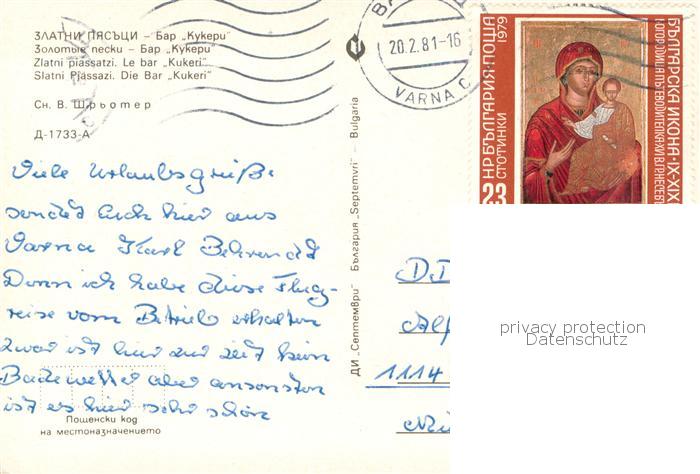 ЗЛАТНИ ПЯСЪЦИ – Бар „Кукери"
Золотые пески – Бар „Кукери"
Zlatni piassatzi. Le bar „Kukeri"
Slatni Pjassazi. Die Bar „Kukeri"
Сн. В. Шрьотер
Д-1733-А
Viele Urlaubsgrüße
sendet Euch hier aus
Varna Karl Behrendt
Denn ich habe diese Flug-
reise vom Betrieb erhalten
zwar ist hier zur Zeit kein
Badewetter aber ansonsten
ist es hier sehr schön
Пощенски код
на местоназначението
ДИ „Септември" България „Septemvri" – Bulgaria
20.2.81-16
VARNA C
1979
НР БЪЛГАРИЯ·ПОЩА
23
СТОТИНКИ
БЪЛГАРСКА ИКОНА·IX-XIX
1114
privacy protection
Datenschutz